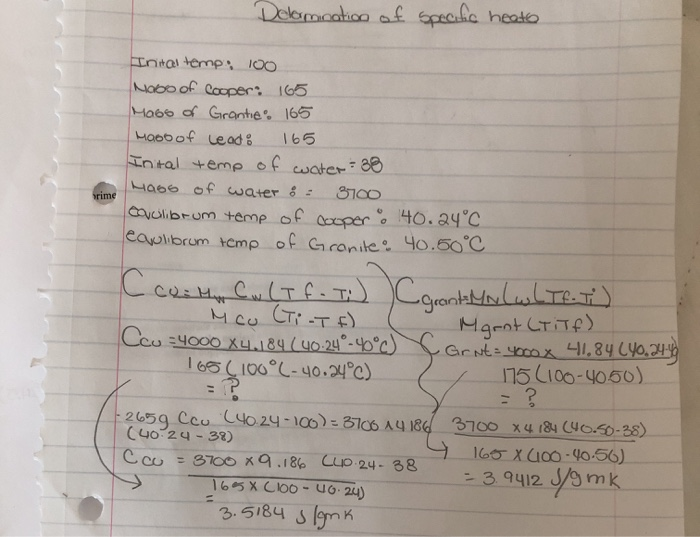 Delamination of specific heats
Inital temp: 100
Mass of Cooper: 165
Mass of Granite: 165
Mass of Lead: 165
Inital temp of water = 38
Mass of water : = 3700
rime
equlibrum temp of cooper : 40.24°C
equlibrum temp of Granite: 40.50°C
C cu = Mw Cw (Tf - Ti)
M cu (Ti - Tf)
Cgrant = MN Cw (Tf - Ti)
Mgrnt (Ti Tf)
Ccu = 4000 x 4.184 (40.24° - 40°C)
165 (100°C - 40.24°C)
= ?
CGrNt = 4000 x 41.84 (40.24-4
175 (100-4050)
= ?
- 265g Ccu (40.24 - 100) = 3700 x 4186
(40.24 - 38)
Ccu = 3700 x 9.186 (40.24 - 38
165 x (100 - 40.24)
=
3.5184 J/gmK
3700 x 4184 (40.50-38)
165 x (100 - 40.50)
= 3.9412 J/gmK